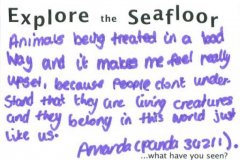 Explore the Seafloor
Animals being treated in a bad
way and it makes me feel really
upset, because People dont under-
Stand that they are living creatures
and they belong in this world just
like us.
Amanda (panda 30211).
...what have you seen?